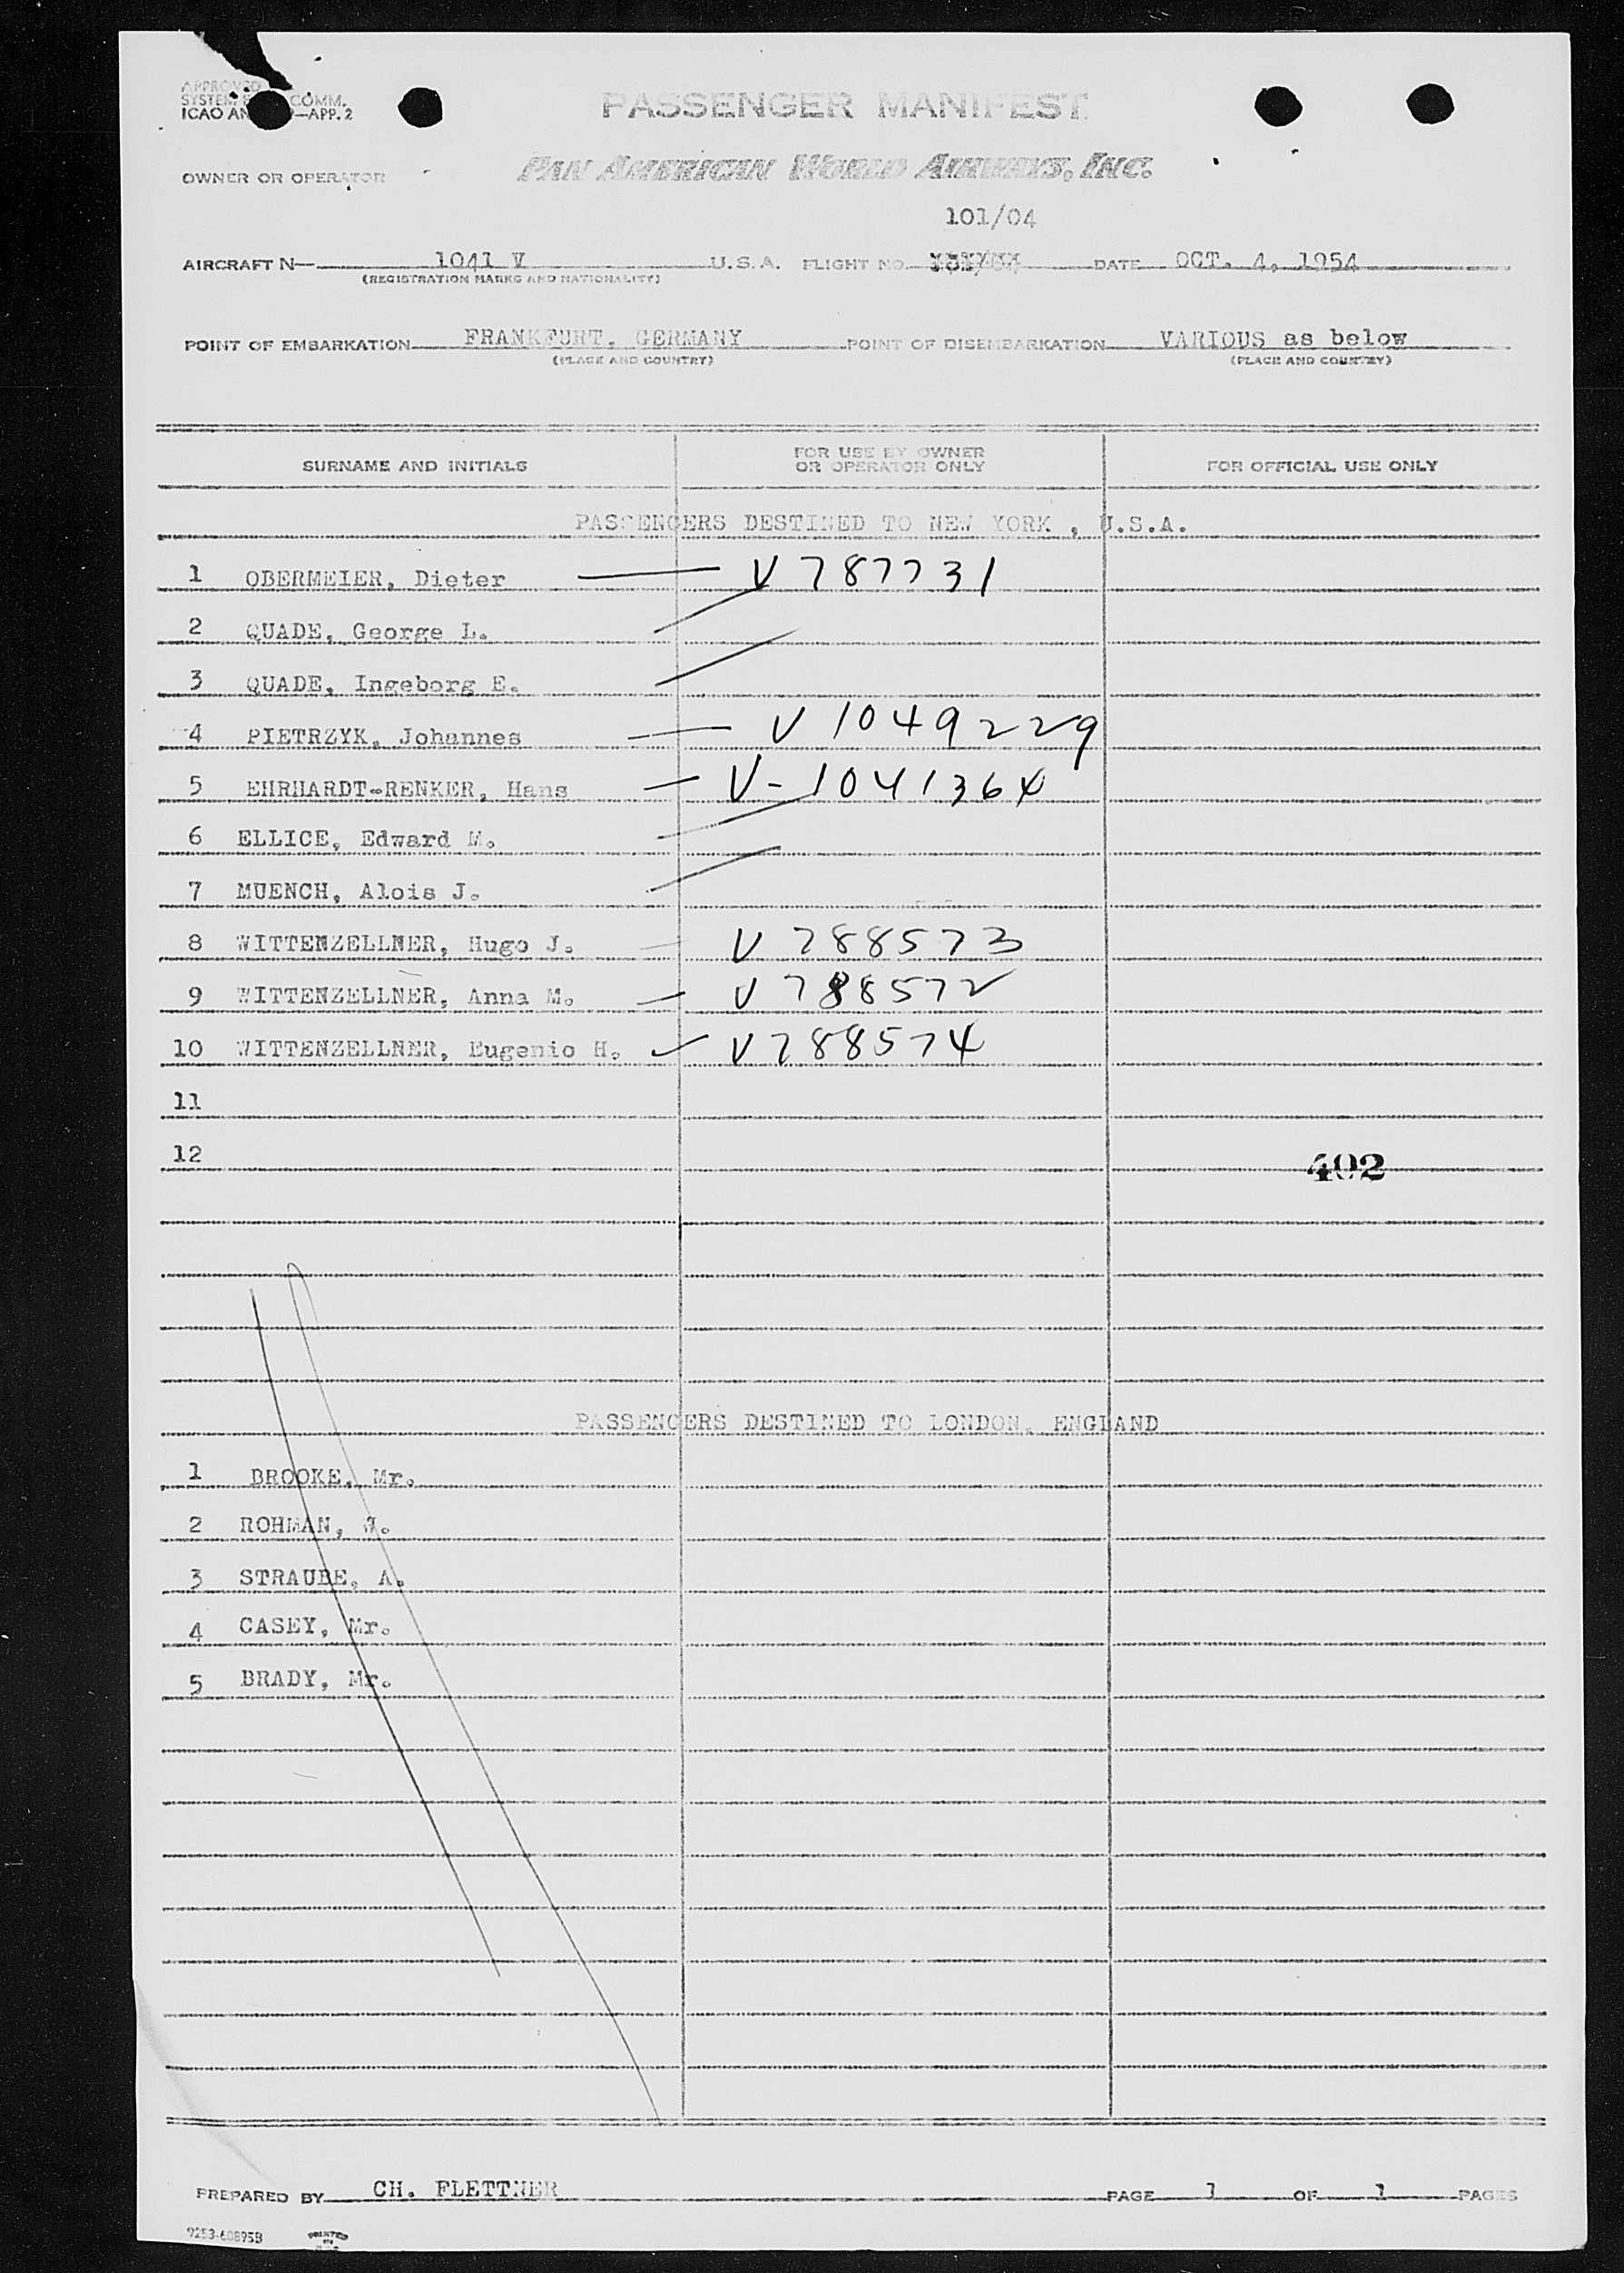 APPROVED
SYSTEM COMM.
ICAO AN —APP. 2
PASSENGER MANIFEST
OWNER OR OPERATOR
PAN AMERICAN WORLD AIRWAYS, INC.
101/04
AIRCRAFT N— 1041 V U. S. A. FLIGHT NO. DATE OCT. 4, 1954
(REGISTRATION MARKS AND NATIONALITY)
POINT OF EMBARKATION FRANKFURT, GERMANY POINT OF DISEMBARKATION VARIOUS as below
(PLACE AND COUNTRY) (PLACE AND COUNTRY)
SURNAME AND INITIALS
FOR USE BY OWNER
OR OPERATOR ONLY
FOR OFFICIAL USE ONLY
PASSENGERS DESTINED TO NEW YORK , U.S.A.
1 OBERMEIER, Dieter V 787731
2 QUADE, George L.
3 QUADE, Ingeborg E.
4 PIETRZYK, Johannes V 1049229
5 EHRHARDT-RENKER, Hans V-1041364
6 ELLICE, Edward M.
7 MUENCH, Alois J.
8 WITTENZELLNER, Hugo J. V 788573
9 WITTENZELLNER, Anna M. V 788572
10 WITTENZELLNER, Eugenio H. V 788574
11
12
402
PASSENGERS DESTINED TO LONDON, ENGLAND
1 BROOKE, Mr.
2 ROHMAN, W.
3 STRAUBE, A.
4 CASEY, Mr.
5 BRADY, Mr.
PREPARED BY CH. FLETTNER PAGE 1 OF 1 PAGES
9253-60895B PRINTED
IN